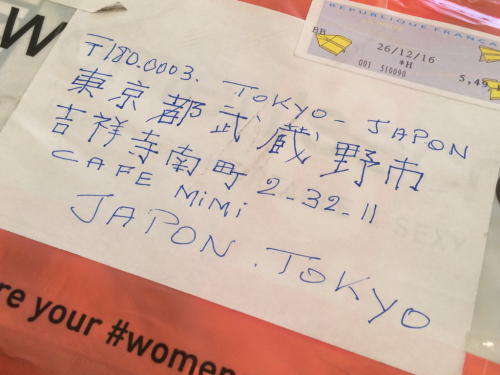 REPUBLIQUE FRANCA
BB
26/12/16
*H
001 510090
5,45
〒180.0003. TOKYO - JAPON
東京都武蔵野市
吉祥寺南町 2-32-11
CAFE MiMi
JAPON . TOKYO
SEXY
W
re your #women